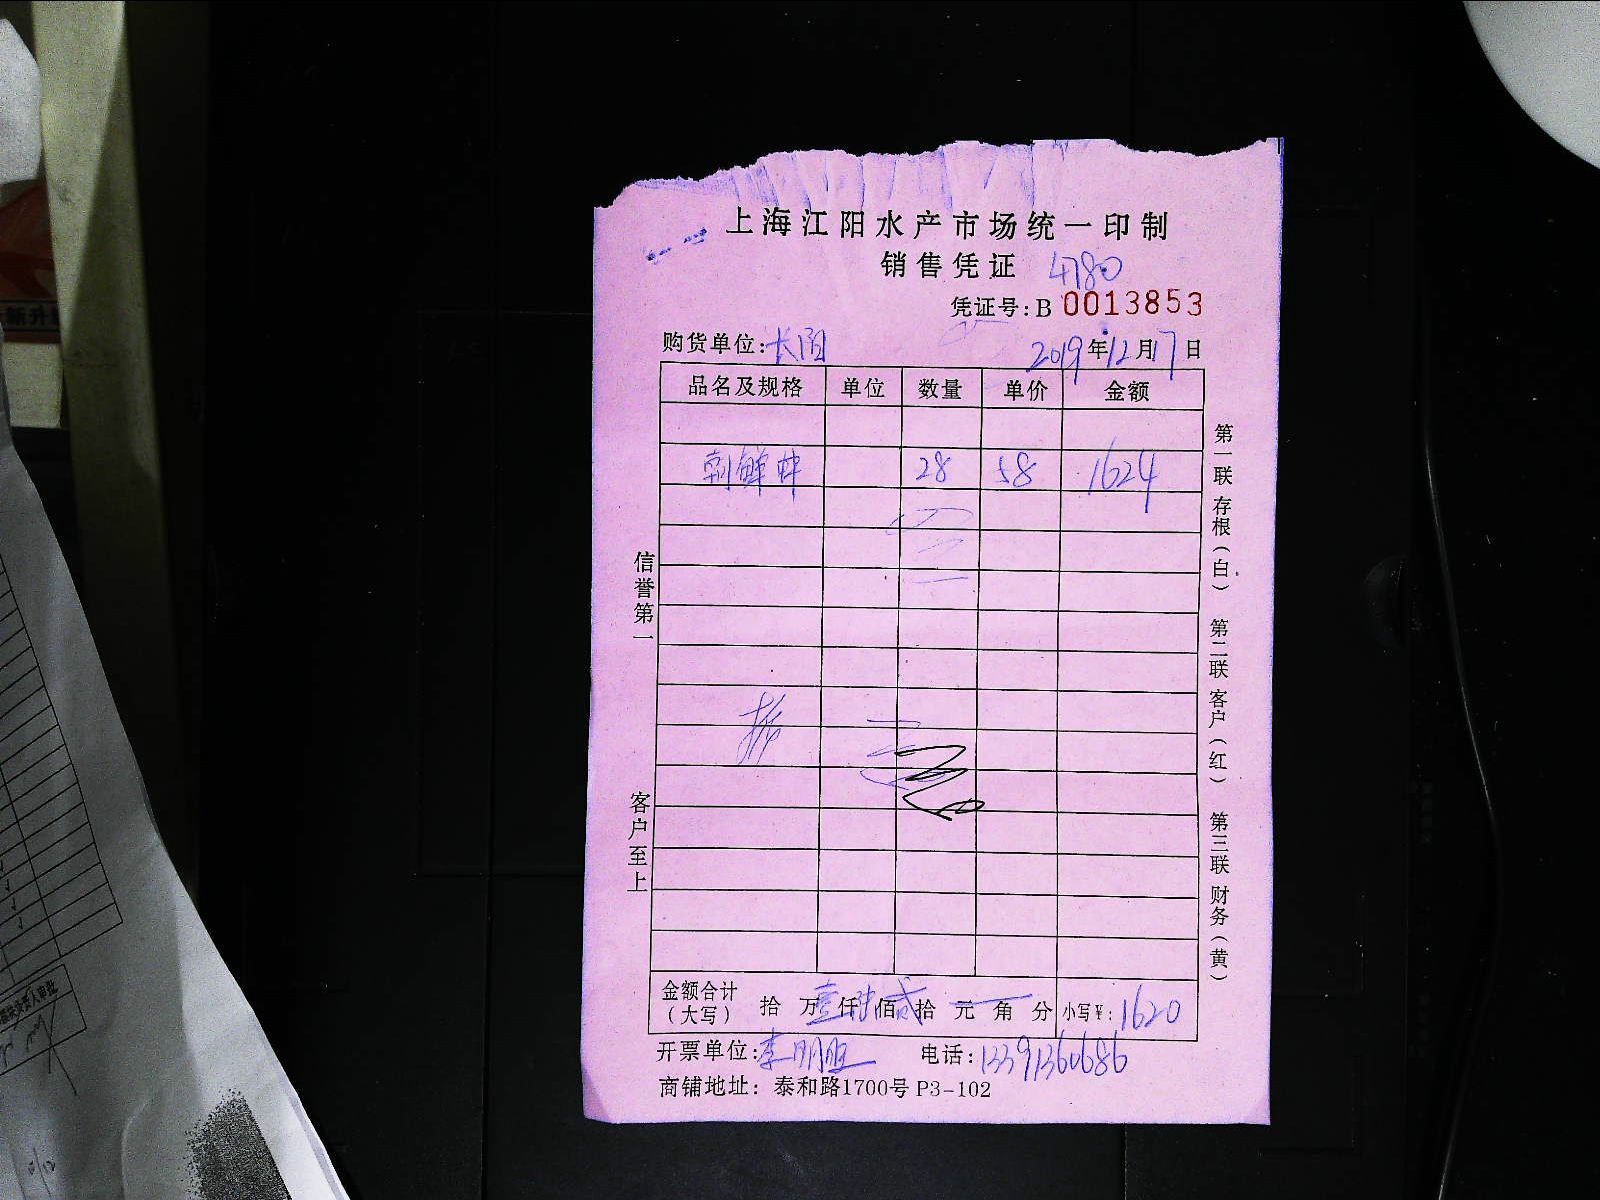 上海江阳水产市场统一印制
销售凭证 4780
凭证号:B 0013853
购货单位:长阳 2019年12月17日
品名及规格 单位 数量 单价 金额
朝鲜蚌 28 58 1624
金额合计(大写) 拾 万 壹仟 陆佰 贰拾 元 角 分 小写¥:1620
开票单位:李明旺 电话:13391360686
商铺地址:泰和路1700号 P3-102
信誉第一
客户至上
第一联 存根(白) 第二联 客户(红) 第三联 财务(黄)